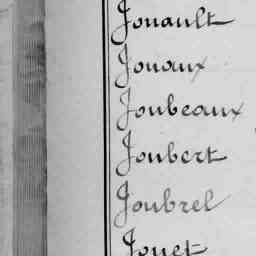 Jouault
Jouaux
Joubeaux
Joubert
Joubrel
Jouet